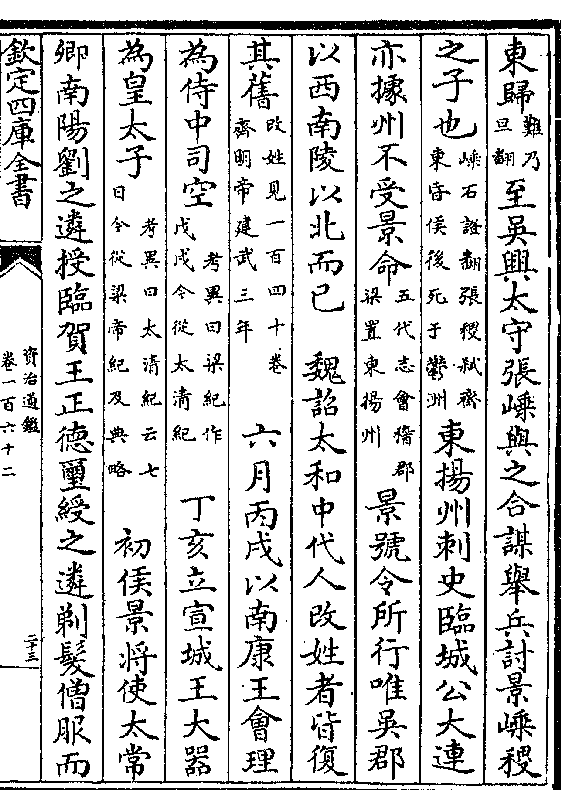 東歸難乃旦翻至吳興太守張嵊與之合謀舉兵討景嵊稷
之子也嵊石證翻張稷弑齊東昏侯後死于鬱洲東揚州刺史臨城公大連
亦據州不受景命五代志會稽郡梁置東揚州景號令所行唯吳郡
以西南陵以北而已 魏詔太和中代人改姓者皆復
其舊改姓見一百四十卷齊明帝建武三年 六月丙戌以南康王會理
為侍中司空考異曰梁紀作戊戌今從太清紀 丁亥立宣城王大器
為皇太子考異曰太清紀云七日今從梁帝紀及典略 初侯景將使太常
卿南陽劉之遴授臨賀王正德璽綬之遴剃髮僧服而
欽定四庫全書
資治通鑑
卷一百六十二
二十三